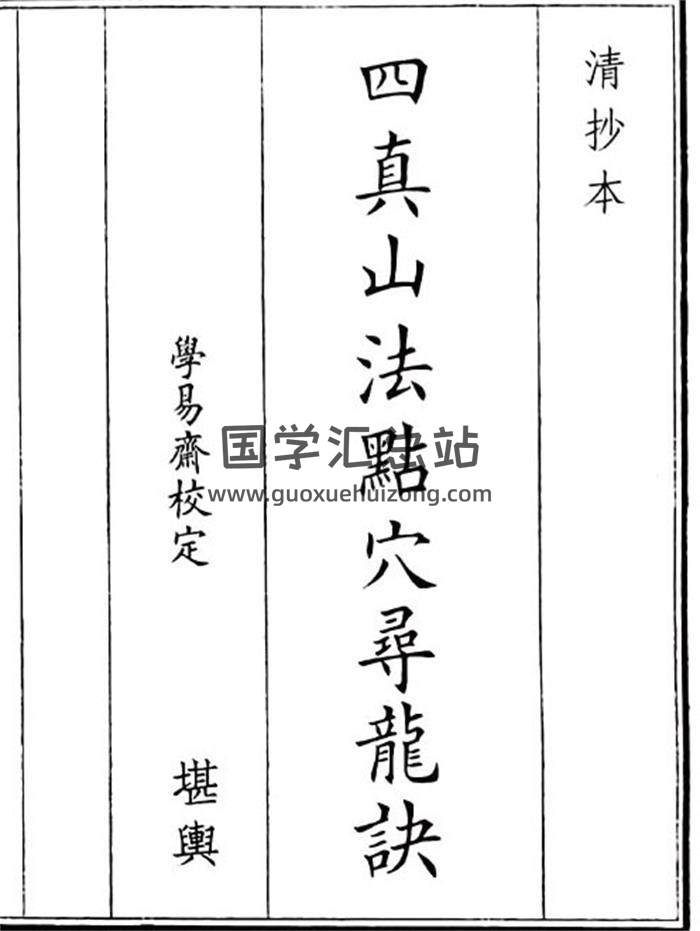 清抄本
四真山法點穴尋龍訣
學易齋校定
堪輿
国学汇总站
www.guoxuehuizong.com